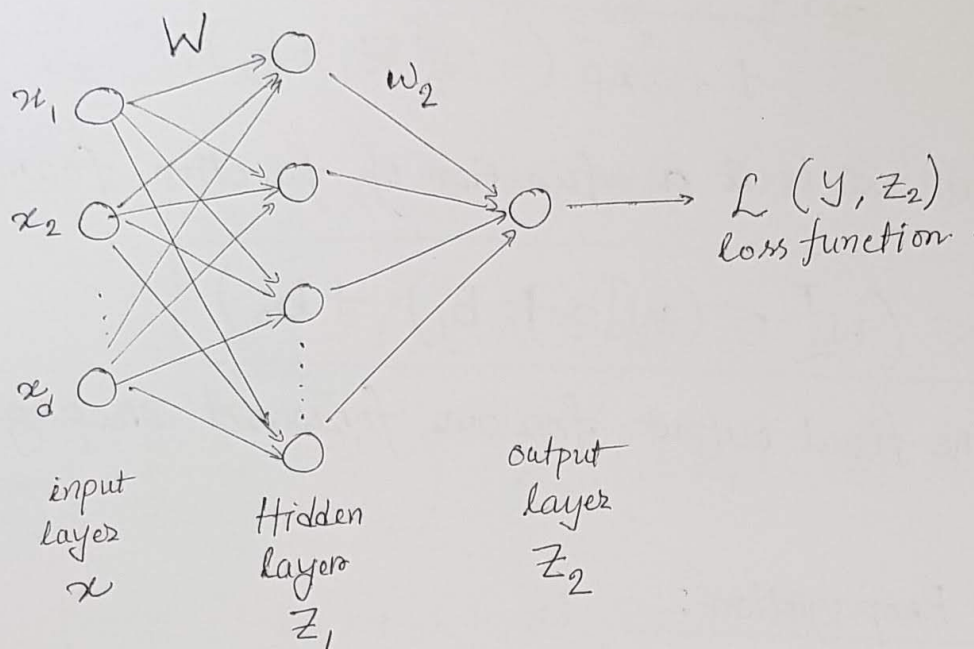 W
w₂
x₁
x₂
x_d
L (y, z₂)
loss function
input
layer
x
Hidden
layer
Z₁
output
layer
Z₂